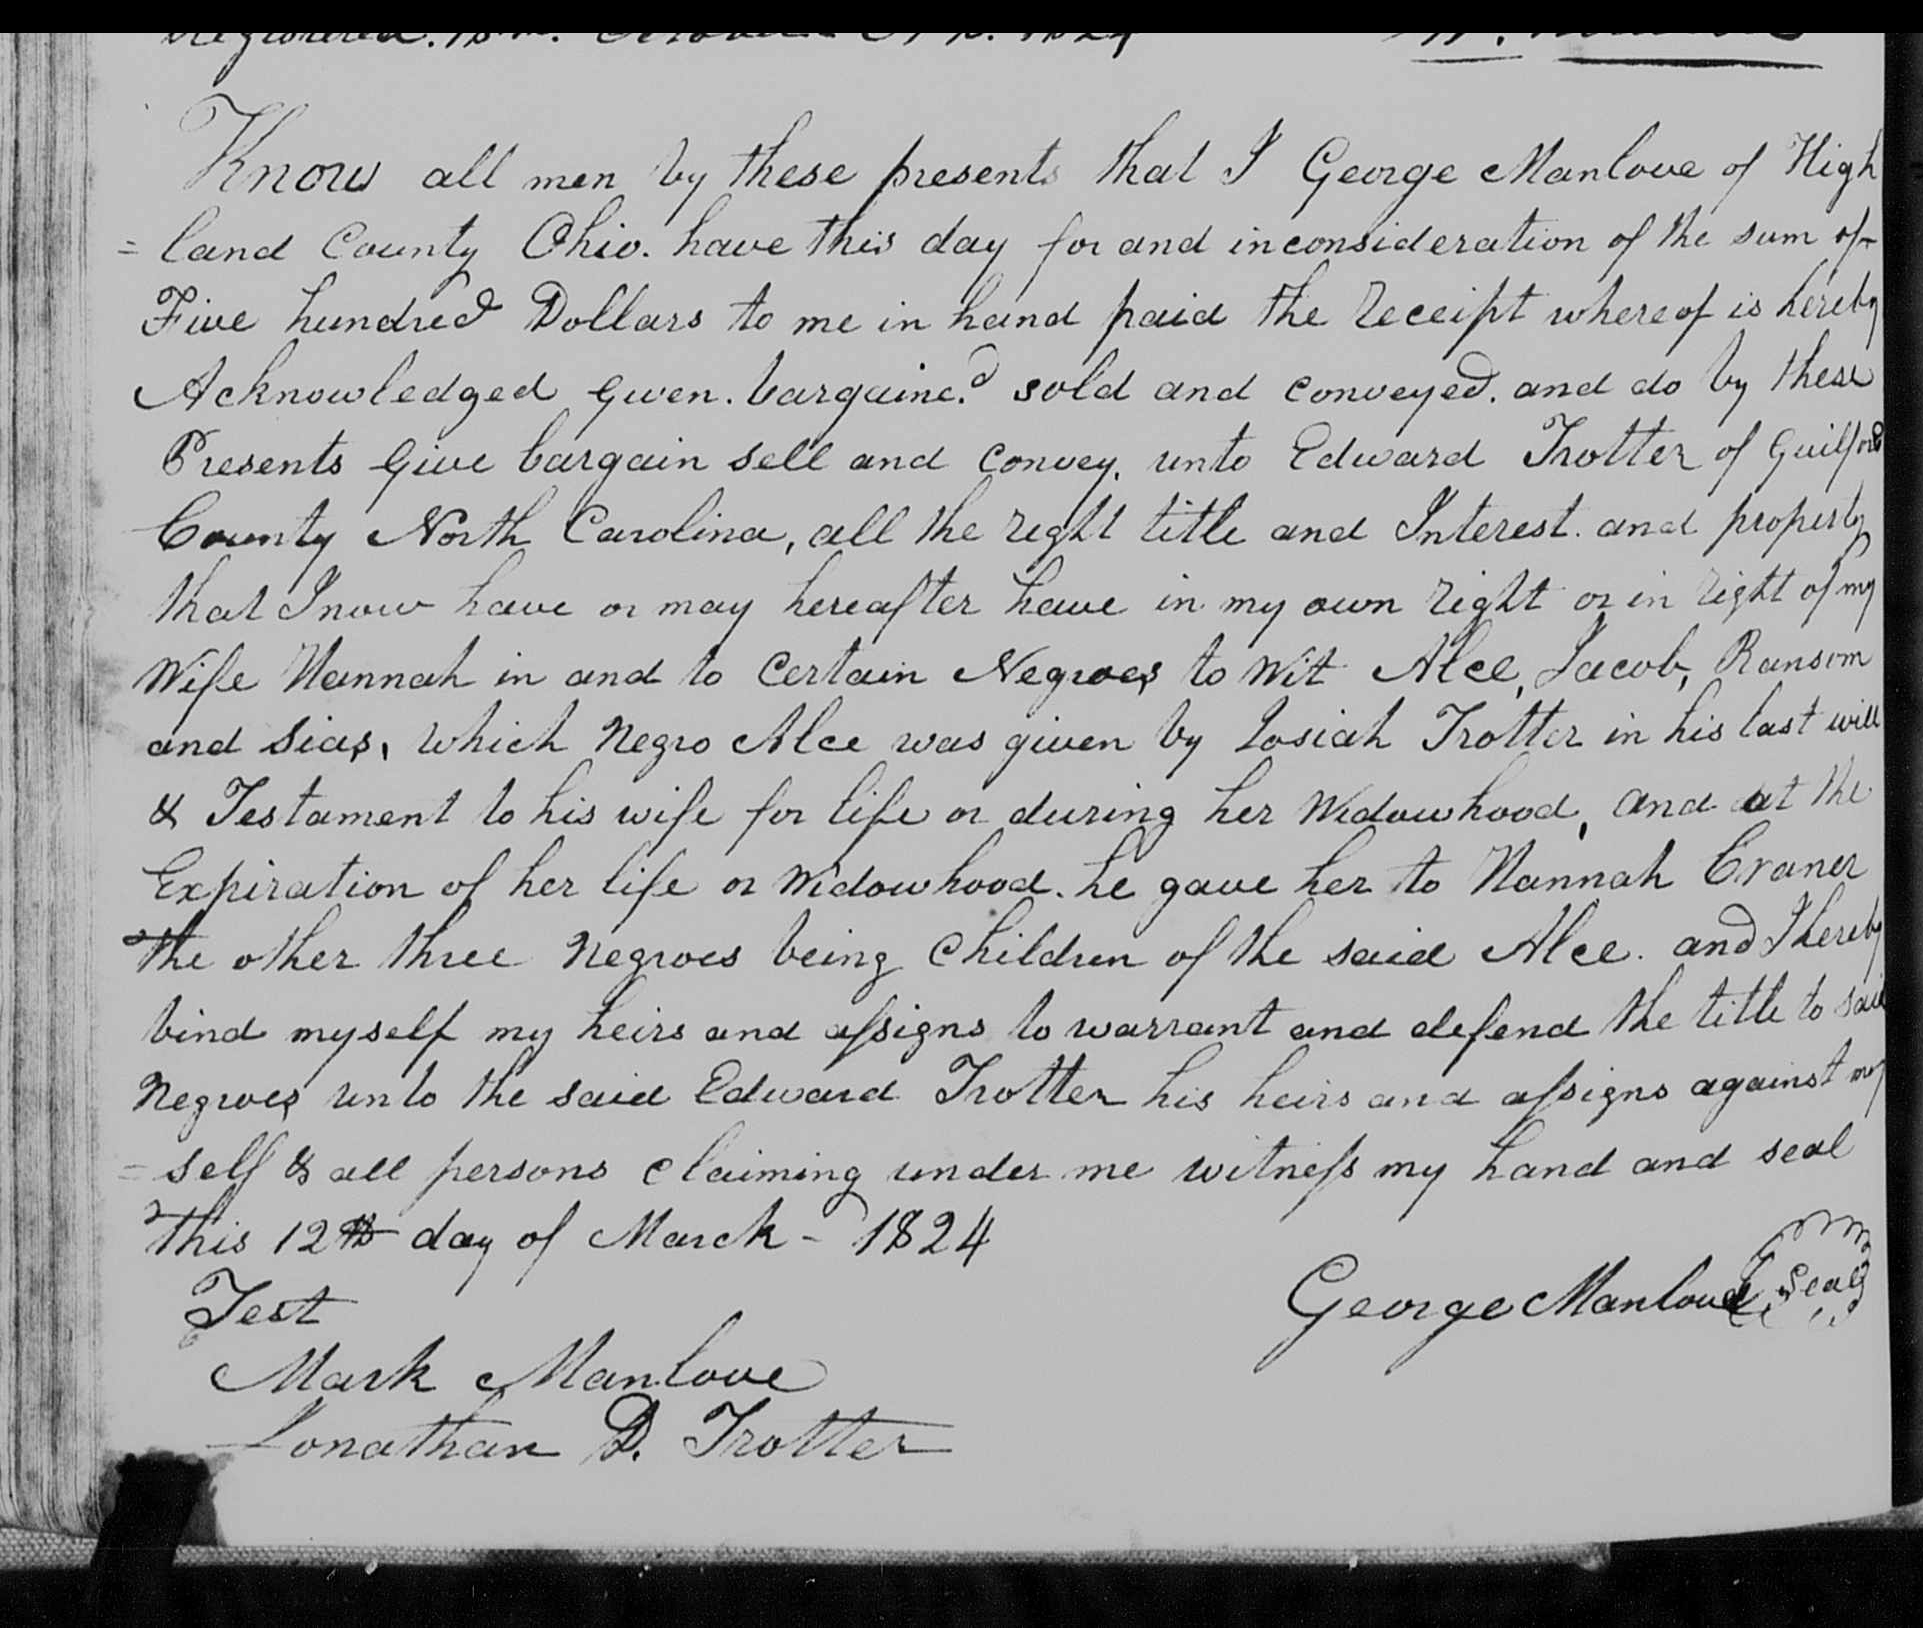 Know all men by these presents that I George Manlove of High
= land County Ohio. have this day for and in consideration of the sum of
Five hundred Dollars to me in hand paid the receipt whereof is hereby
Acknowledged given. bargaine.d sold and conveyed. and do by these
Presents Give bargain sell and convey. unto Edward Trotter of Guilford
County North Carolina, all the right title and Interest. and property
that I now have or may hereafter have in my own right or in right of my
Wife Hannah in and to Certain Negroes to Wit Alce, Jacob, Ransom
and Sias, which Negro Alce was given by Josiah Trotter in his last will
& Testament to his wife for life or during her Widowhood, and at the
Expiration of her life or Widowhood. he gave her to Hannah Craner
the other three Negroes being Children of the said Alce. and I hereby
bind myself my heirs and assigns to warrant and defend the title to said
Negroes unto the said Edward Trotter his heirs and assigns against my
= self & all persons claiming under me witness my hand and seal
this 12th day of March - 1824
Test
George Manlove Seal
Mark Manlove
Jonathan D. Trotter